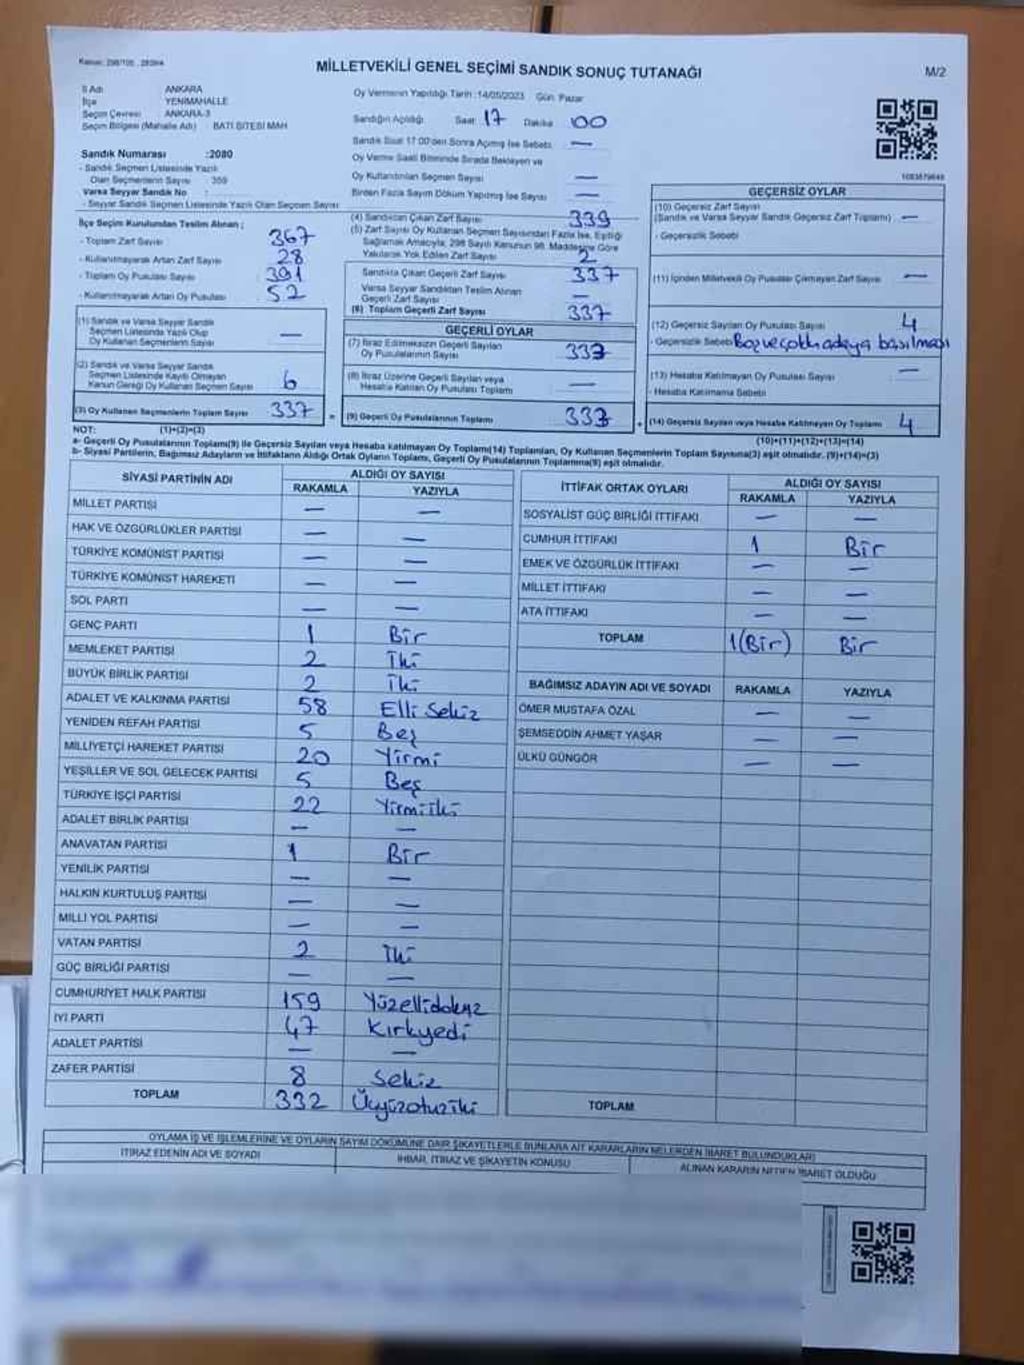 Kanun: 298/105 , 2839/4
MİLLETVEKİLİ GENEL SEÇİMİ SANDIK SONUÇ TUTANAĞI
M/2
İl Adı ANKARA
İlçe YENİMAHALLE
Seçim Çevresi ANKARA-3
Seçim Bölgesi (Mahalle Adı) BATI SİTESİ MAH
Sandık Numarası :2080
- Sandık Seçmen Listesinde Yazılı
Olan Seçmenlerin Sayısı 359
Varsa Seyyar Sandık No :
- Seyyar Sandık Seçmen Listesinde Yazılı Olan Seçmen Sayısı
Oy Vermenin Yapıldığı Tarih :14/05/2023 Gün: Pazar
Sandığın Açıldığı Saat 17 Dakika 00
Sandık Saat 17:00'den Sonra Açılmış İse Sebebi —
Oy Verme Saati Bitiminde Sırada Bekleyen ve
Oy Kullandırılan Seçmen Sayısı —
Birden Fazla Sayım Döküm Yapılmış İse Sayısı —
İlçe Seçim Kurulundan Teslim Alınan ;
- Toplam Zarf Sayısı 367
- Kullanılmayarak Artan Zarf Sayısı 28
- Toplam Oy Pusulası Sayısı 391
- Kullanılmayarak Artan Oy Pusulası 52
(1) Sandık ve Varsa Seyyar Sandık
Seçmen Listesinde Yazılı Olup
Oy Kullanan Seçmenlerin Sayısı —
(2) Sandık ve Varsa Seyyar Sandık
Seçmen Listesinde Kayıtlı Olmayan
Kanun Gereği Oy Kullanan Seçmen Sayısı 6
(3) Oy Kullanan Seçmenlerin Toplam Sayısı 337
(4) Sandıktan Çıkan Zarf Sayısı 339
(5) Zarf Sayısı Oy Kullanan Seçmen Sayısından Fazla İse, Eşitliği
Sağlamak Amacıyla, 298 Sayılı Kanunun 98. Maddesine Göre
Yakılarak Yok Edilen Zarf Sayısı 2
Sandıkta Çıkan Geçerli Zarf Sayısı 337
Varsa Seyyar Sandıktan Teslim Alınan
Geçerli Zarf Sayısı —
(6) Toplam Geçerli Zarf Sayısı 337
GEÇERLİ OYLAR
(7) İtiraz Edilmeksizin Geçerli Sayılan
Oy Pusulalarının Sayısı 333
(8) İtiraz Üzerine Geçerli Sayılan veya
Hesaba Katılan Oy Pusulası Toplamı —
(9) Geçerli Oy Pusulalarının Toplamı 333
1083879648
GEÇERSİZ OYLAR
(10) Geçersiz Zarf Sayısı
(Sandık ve Varsa Seyyar Sandık Geçersiz Zarf Toplamı) —
- Geçersizlik Sebebi
(11) İçinden Milletvekili Oy Pusulası Çıkmayan Zarf Sayısı —
(12) Geçersiz Sayılan Oy Pusulası Sayısı 4
- Geçersizlik Sebebi Boş ve çoklu adaya basılması
(13) Hesaba Katılmayan Oy Pusulası Sayısı —
- Hesaba Katılmama Sebebi
(14) Geçersiz Sayılan veya Hesaba Katılmayan Oy Toplamı 4
NOT: (1)+(2)=(3) (10)+(11)+(12)+(13)=(14)
a- Geçerli Oy Pusulalarının Toplamı(9) ile Geçersiz Sayılan veya Hesaba katılmayan Oy Toplamı(14) Toplamları, Oy Kullanan Seçmenlerin Toplam Sayısına(3) eşit olmalıdır. (9)+(14)=(3)
b- Siyasi Partilerin, Bağımsız Adayların ve İttifakların Aldığı Ortak Oyların Toplamı, Geçerli Oy Pusulalarının Toplamına(9) eşit olmalıdır.
SİYASİ PARTİNİN ADI ALDIĞI OY SAYISI
RAKAMLA YAZIYLA
MİLLET PARTİSİ — —
HAK VE ÖZGÜRLÜKLER PARTİSİ — —
TÜRKİYE KOMÜNİST PARTİSİ — —
TÜRKİYE KOMÜNİST HAREKETİ — —
SOL PARTİ — —
GENÇ PARTİ 1 Bir
MEMLEKET PARTİSİ 2 İki
BÜYÜK BİRLİK PARTİSİ 2 İki
ADALET VE KALKINMA PARTİSİ 58 Elli Sekiz
YENİDEN REFAH PARTİSİ 5 Beş
MİLLİYETÇİ HAREKET PARTİSİ 20 Yirmi
YEŞİLLER VE SOL GELECEK PARTİSİ 5 Beş
TÜRKİYE İŞÇİ PARTİSİ 22 Yirmiiki
ADALET BİRLİK PARTİSİ — —
ANAVATAN PARTİSİ 1 Bir
YENİLİK PARTİSİ — —
HALKIN KURTULUŞ PARTİSİ — —
MİLLİ YOL PARTİSİ — —
VATAN PARTİSİ 2 İki
GÜÇ BİRLİĞİ PARTİSİ — —
CUMHURİYET HALK PARTİSİ 159 Yüzellidokuz
İYİ PARTİ 47 Kırkyedi
ADALET PARTİSİ — —
ZAFER PARTİSİ 8 Sekiz
TOPLAM 332 Üçyüzotuziki
İTTİFAK ORTAK OYLARI ALDIĞI OY SAYISI
RAKAMLA YAZIYLA
SOSYALİST GÜÇ BİRLİĞİ İTTİFAKI — —
CUMHUR İTTİFAKI 1 Bir
EMEK VE ÖZGÜRLÜK İTTİFAKI — —
MİLLET İTTİFAKI — —
ATA İTTİFAKI — —
TOPLAM 1(Bir) Bir
BAĞIMSIZ ADAYIN ADI VE SOYADI RAKAMLA YAZIYLA
ÖMER MUSTAFA ÖZAL — —
ŞEMSEDDİN AHMET YAŞAR — —
ÜLKÜ GÜNGÖR — —
TOPLAM
OYLAMA İŞ VE İŞLEMLERİNE VE OYLARIN SAYIM DÖKÜMÜNE DAİR ŞİKAYETLERLE BUNLARA AİT KARARLARIN NELERDEN İBARET BULUNDUKLARI
İTİRAZ EDENİN ADI VE SOYADI İHBAR, İTİRAZ VE ŞİKAYETİN KONUSU ALINAN KARARIN NEDEN İBARET OLDUĞU